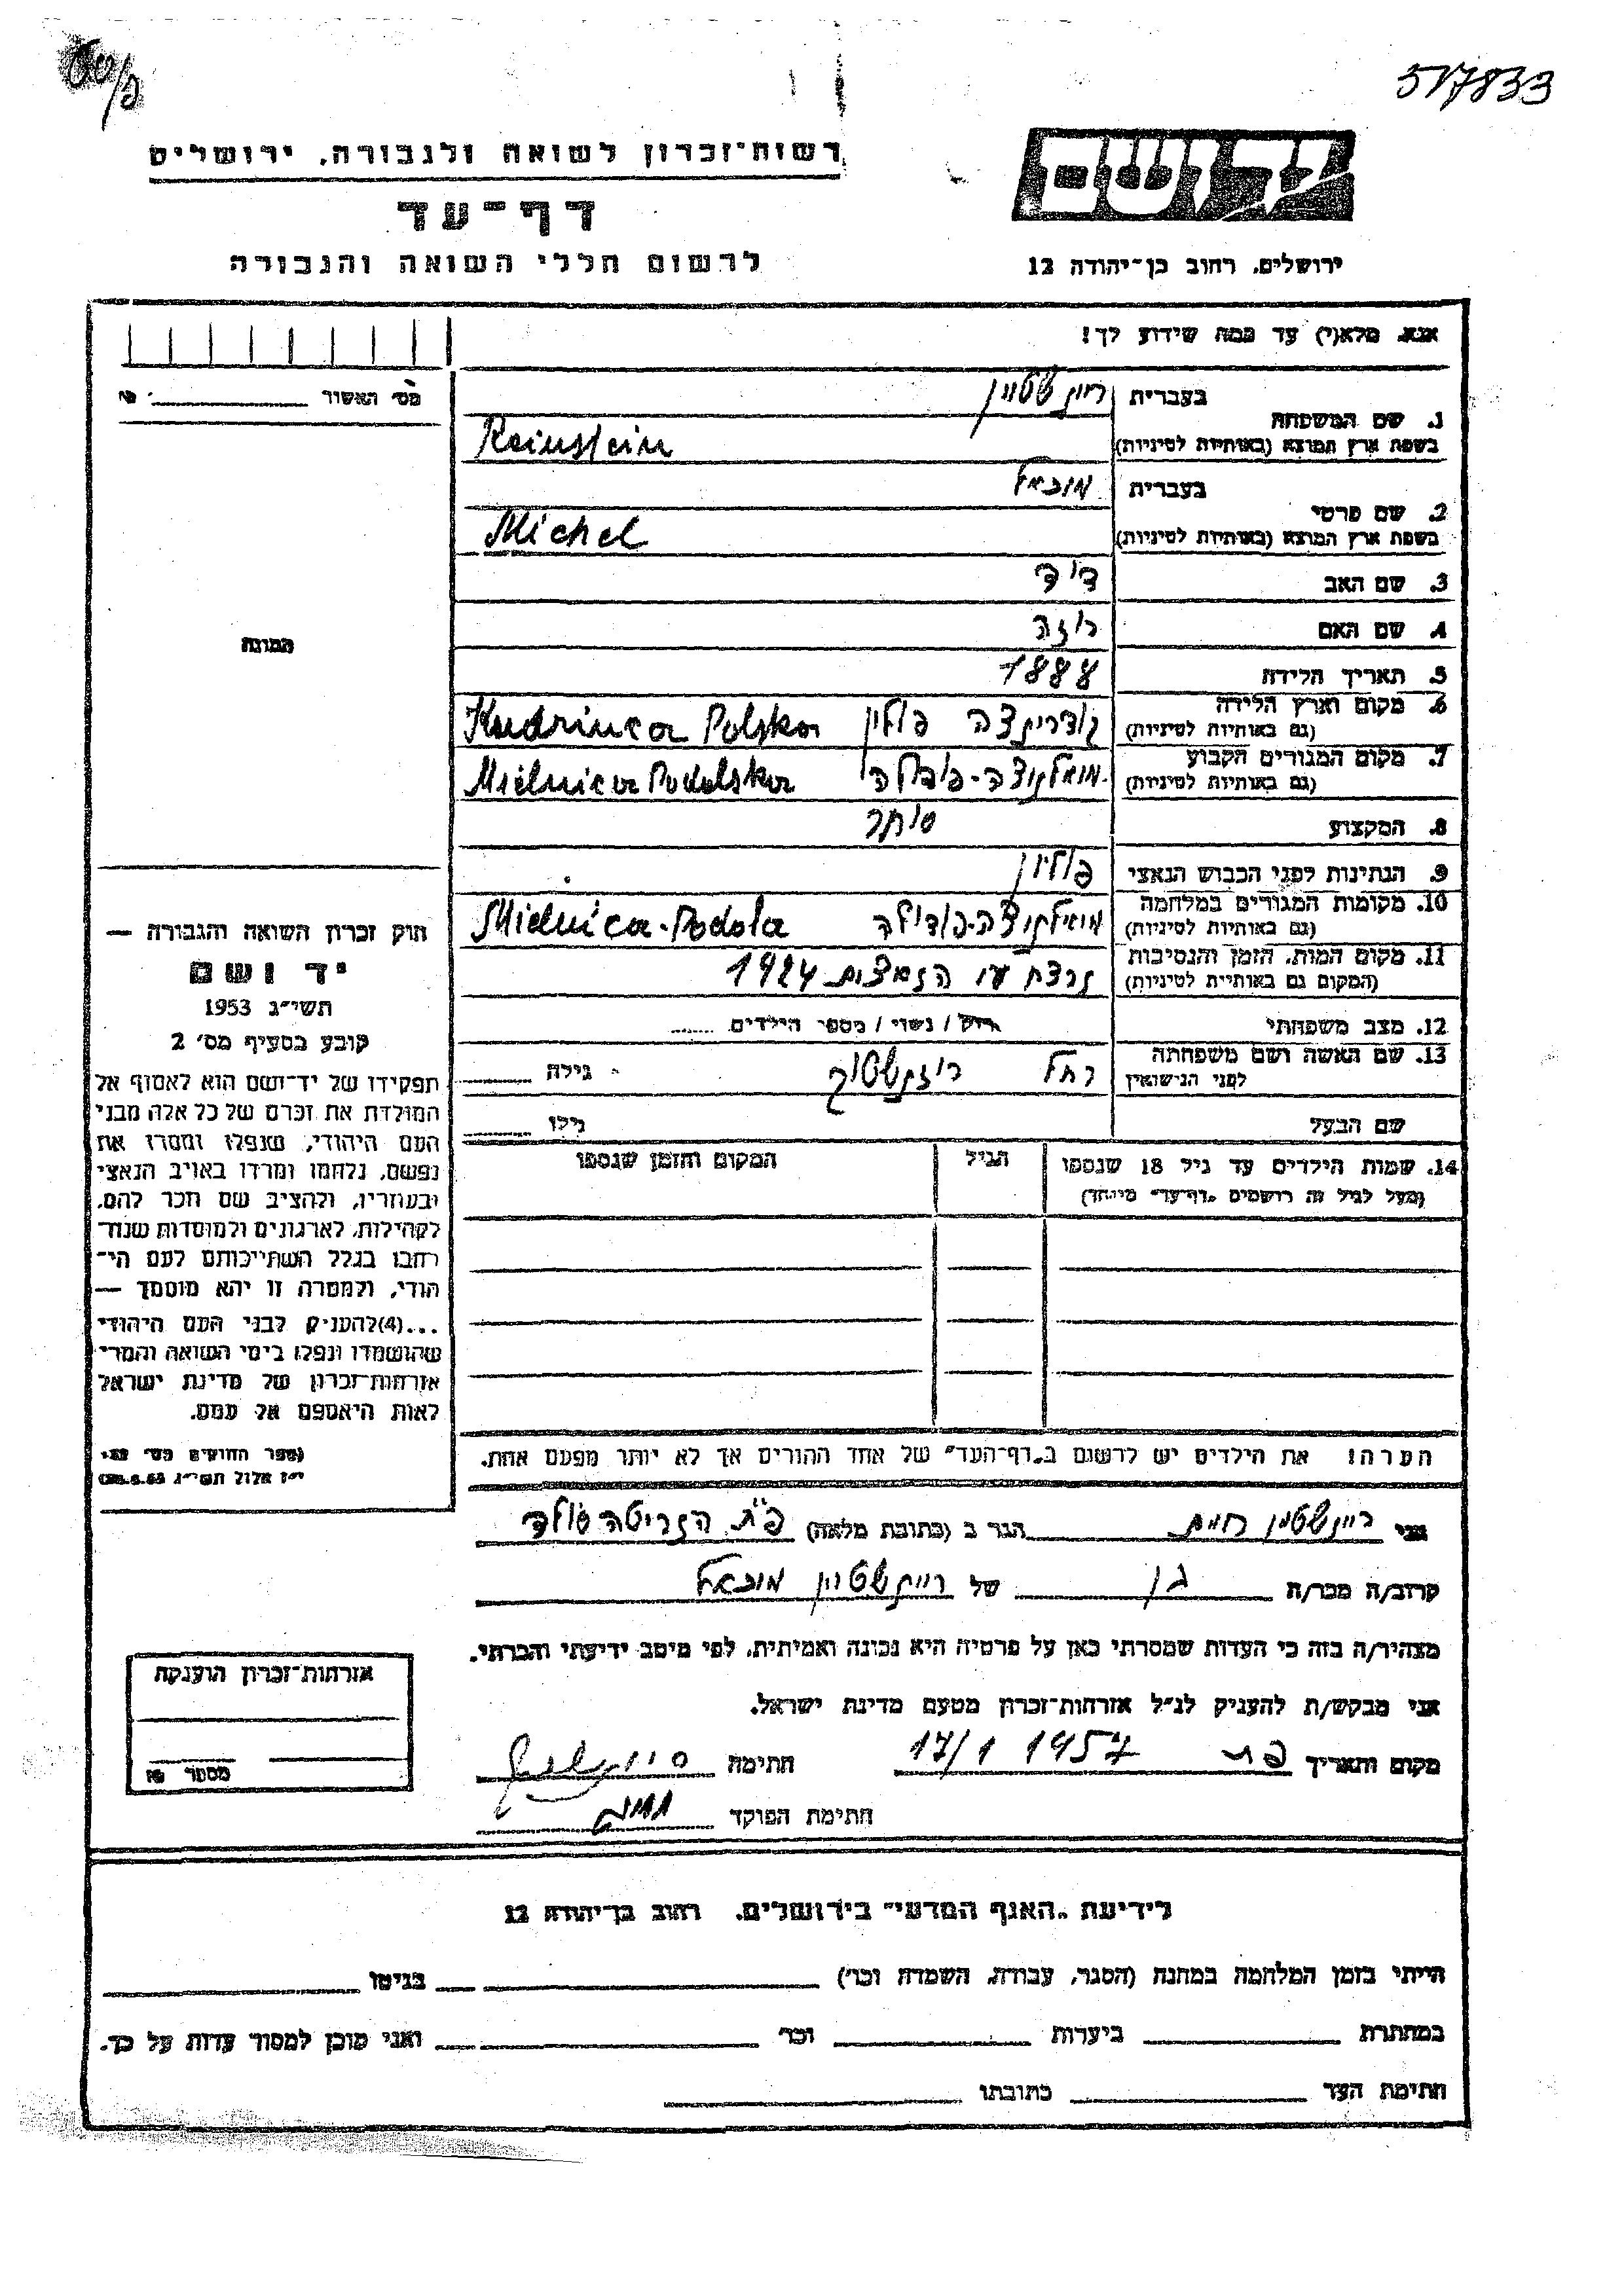 517833
רשות־זכרון לשואה ולגבורה, ירושלים
יד ושם
דף־עד
ירושלים, רחוב בן־יהודה 12
לרשום חללי השואה והגבורה
אנא, מלא(י) עד כמה שידוע לך!
מס' האשור
1. שם המשפחה
בעברית ריינשטיין
בשפת ארץ המוצא (באותיות לטיניות) Reinstein
2. שם פרטי
בעברית מיכאל
בשפת ארץ המוצא (באותיות לטיניות) Michel
3. שם האב דוד
4. שם האם רוזה
5. תאריך הלידה 1888
6. מקום וארץ הלידה (גם באותיות לטיניות) קודרינצה פולין Kudrinca Polska
7. מקום המגורים הקבוע (גם באותיות לטיניות) מיאלניצה-פודולה Mielnica Podolska
8. המקצוע סוחר
9. הנתינות לפני הכבוש הנאצי פולין
10. מקומות המגורים במלחמה (גם באותיות לטיניות) מיאלניצה-פודולה Mielnica-Podola
11. מקום המות, הזמן והנסיבות (המקום גם באותיות לטיניות) נרצח ע"י הנאצים 1924
12. מצב משפחתי רווק / נשוי / מספר הילדים
13. שם האשה ושם משפחתה לפני הנישואין רחל גילה
שם הבעל גילו
14. שמות הילדים עד גיל 18 שנספו הגיל המקום והזמן שנספו
(מעל לגיל זה רושמים "דף־עד" מיוחד)
הערה: את הילדים יש לרשום ב"דף־העד" של אחד ההורים אך לא יותר מפעם אחת.
התמונה
חוק זכרון השואה והגבורה —
יד ושם
תשי"ג 1953
קובע בסעיף מס' 2
תפקידו של יד־ושם הוא לאסוף אל
המולדת את זכרם של כל אלה מבני
העם היהודי, שנפלו ומסרו את
נפשם, נלחמו ומרדו באויב הנאצי
ובעוזריו, ולהציב שם וזכר להם,
לקהילות, לארגונים ולמוסדות שנח־
רבו בגלל השתייכותם לעם הי־
הודי, ולמטרה זו יהא מוסמך —
...(4) להעניק לבני העם היהודי
שהושמדו ונפלו בימי השואה והמרי
אזרחות־זכרון של מדינת ישראל
לאות היאספם אל עמם.
(ספר החוקים מס' 132
י"ז אלול תשי"ג 28.8.53)
אני ריינשטיין חיים הגר ב (כתובת מלאה) פ"ת הנריטה סולד
קרוב/ה מכר/ה בן של ריינשטיין מיכאל
מצהיר/ה בזה כי העדות שמסרתי כאן על פרטיה היא נכונה ואמיתית, לפי מיטב ידיעתי והכרתי.
אני מבקש/ת להעניק לנ"ל אזרחות־זכרון מטעם מדינת ישראל.
מקום ותאריך פ"ת 17/1 1957 חתימה
חתימת הפוקד
אזרחות־זכרון הוענקה
מספר
לידיעת "האגף המדעי" בירושלים, רחוב בן־יהודה 12
הייתי בזמן המלחמה במחנה (הסגר, עבודה, השמדה וכו') בגיטו
במחתרת ביערות וכו' ואני מוכן למסור עדות על כך.
חתימת העד כתובתו